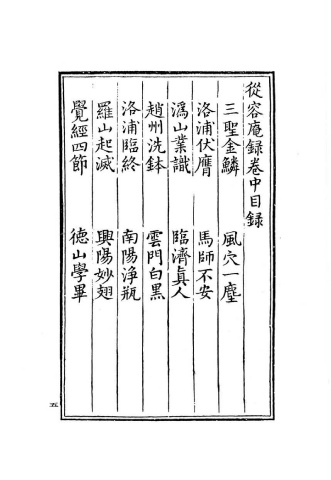 從容庵録卷中目録
三聖金鱗　風穴一塵
洛浦伏膺　馬師不安
溈山業識　臨濟眞人
趙州洗鉢　雲門白黑
洛浦臨終　南陽淨瓶
羅山起滅　興陽妙翅
覺經四節　德山學畢
五